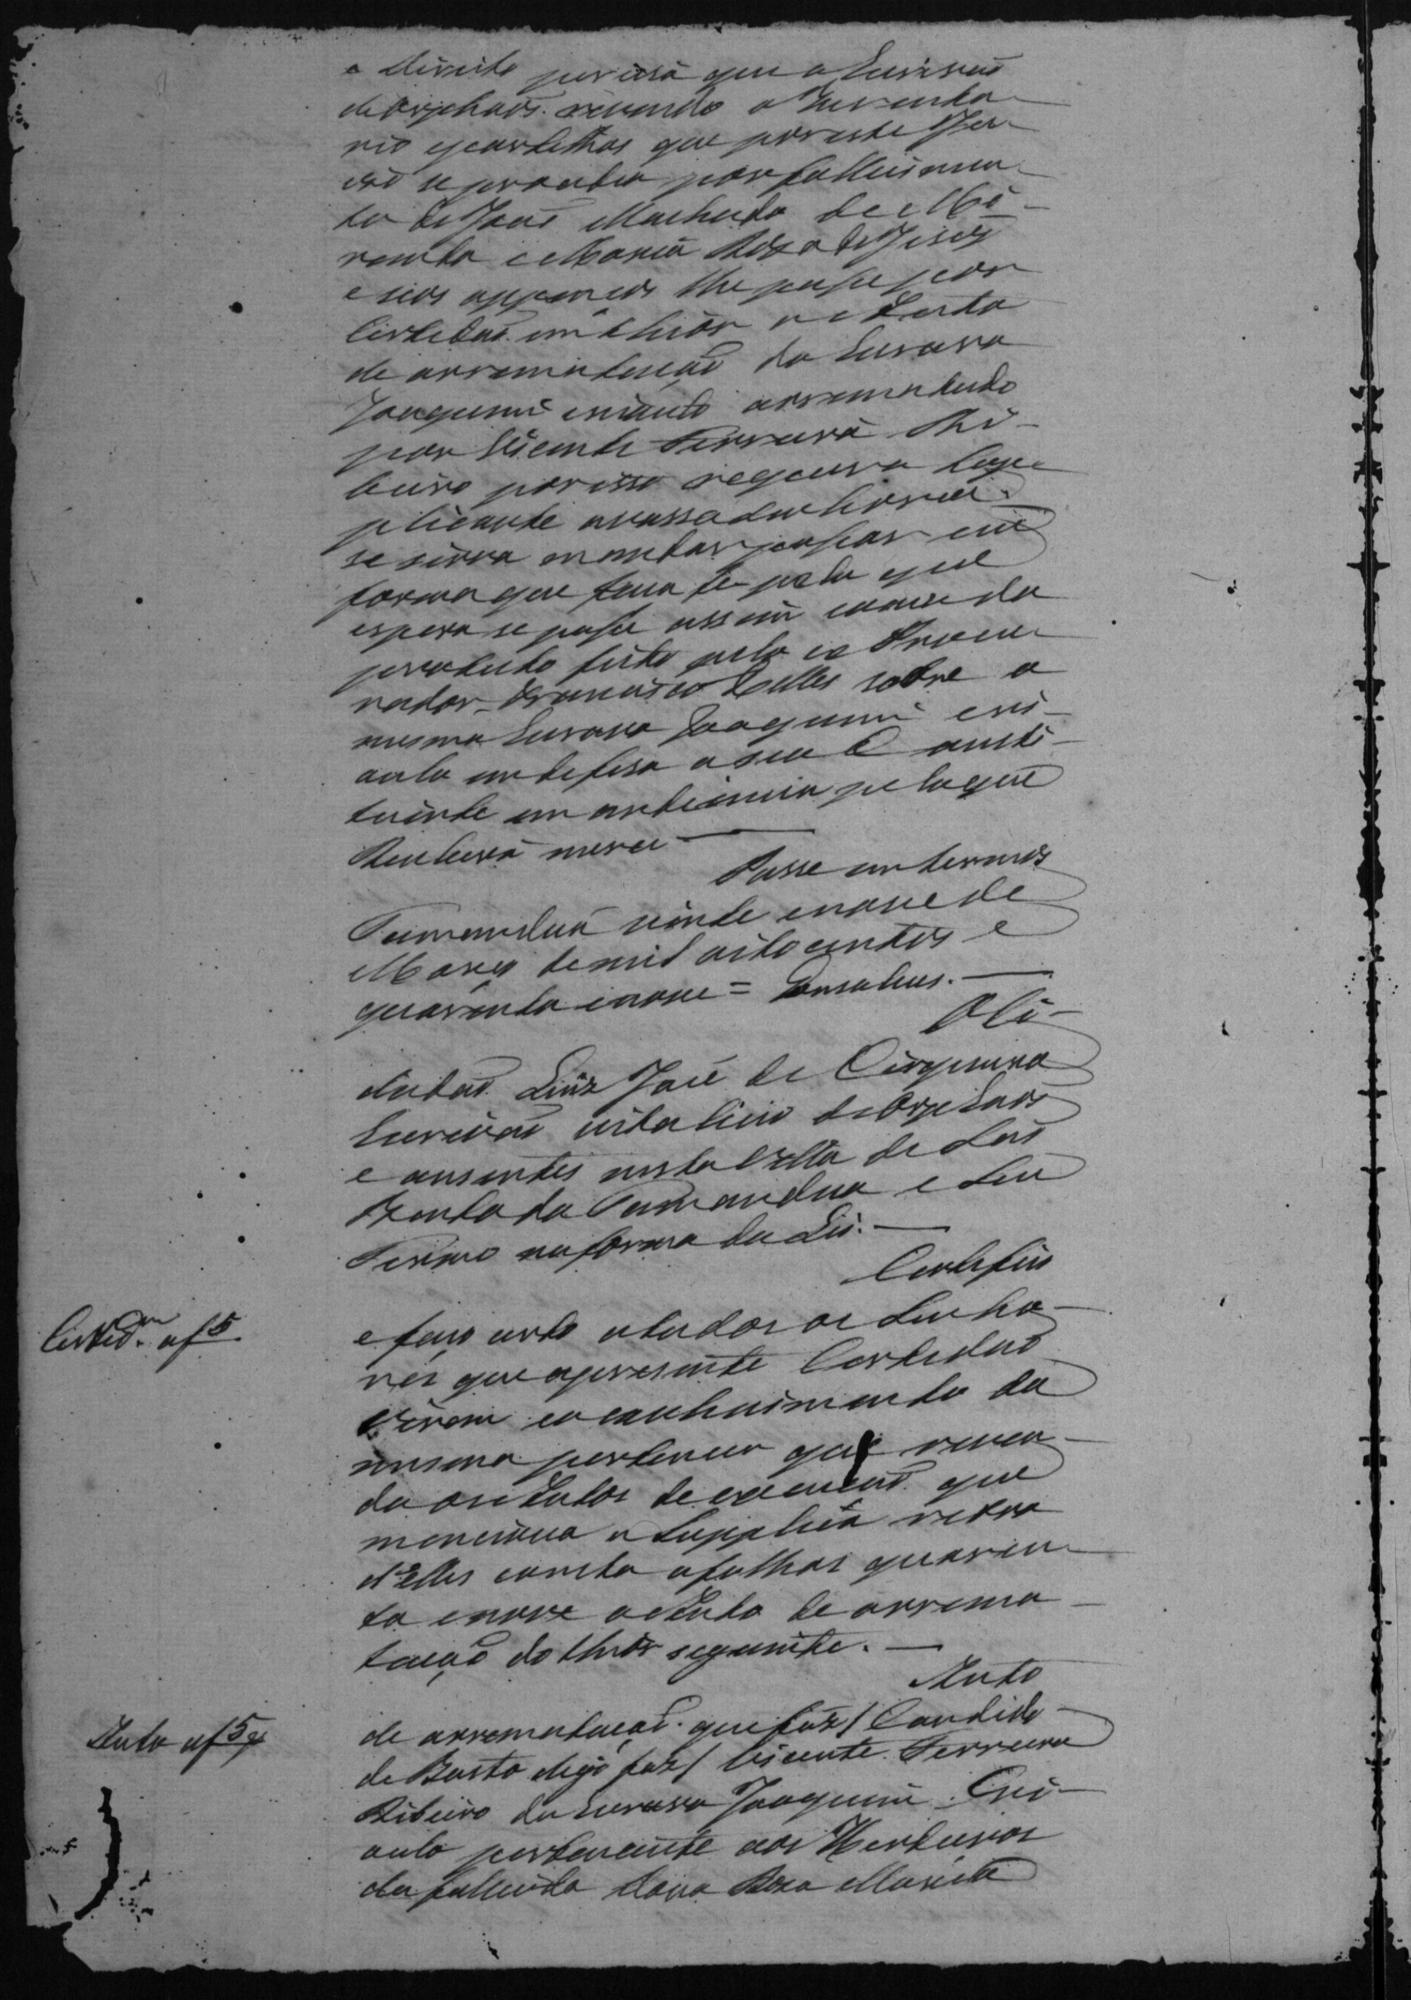 e direito precisa que o Escrivaõ
de Orphaõs revendo o Inventa-
rio e partilhas que por este Jui-
so se procedeo por fallecimen-
to de José Machado de Mi-
randa e Maria Rosa de Jesus
e seos appenços lhe passe por
Certidaõ em theor o Auto
de arrematacaõ do Escravo
Joaquim crioulo arrematado
por Vicente Ferreira Ri-
beiro por isso requer a Sup-
plicante a vossa Senhoria
se sirva mandar passar em
forma que faca fé pelo que
espera se passe assim como do
protesto feito pelo ex Procu-
rador Francisco Telles sobre o
mesmo Escravo Joaquim cri-
oulo em defesa a seu Consti-
tuinte em audiencia pelo que
Receberá merce
Passe em termos
Tamanduá vinte e nove de
Março de mil oito centos e
quarenta e nove =
Ci-
dadaõ Luiz José de Cirqueira
Escrivaõ vitalicio de Orphaõs
e ausentes nesta Villa de Saõ
Bento do Tamandua e seu
Termo na forma da Lei.
Certefico
Certid.am af 5
e faço certo a todos os Senho-
res que a presente Certidaõ
virem e o conhecimento da
mesma pertencer que reven-
do os autos de execucaõ que
menciona a Supplica retro
d'elles consta a folhas quaren-
ta e nove o Auto de arrema-
tacaõ do theor seguinte.
Auto
Auto af 5
de arrematacaõ que faz / Candido
de Basto digo faz / Vicente Ferreira
Ribeiro do Escravo Joaquim Cri-
oulo pertencente aos Herdeiros
da fallecida Dona Rosa Maria